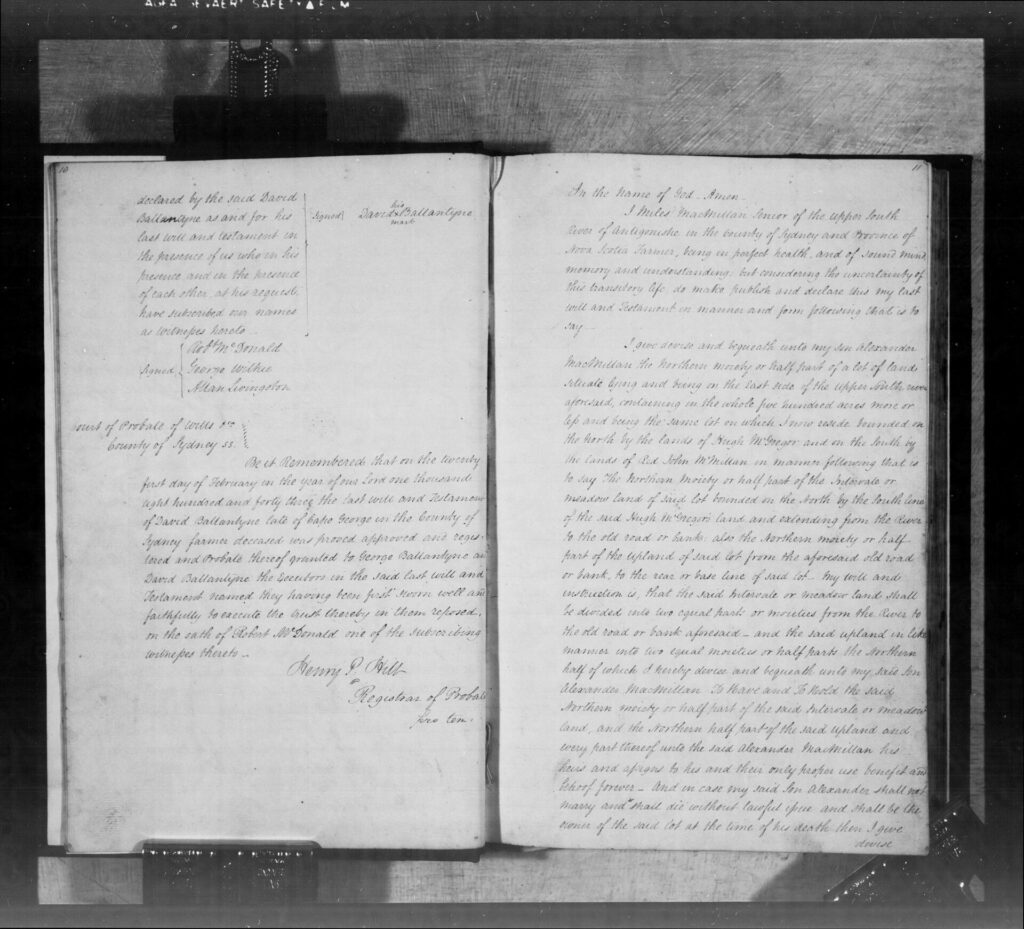 AGFA GEVAERT SAFETY▲FILM
10
declared by the said David
Ballantyne as and for his
last will and testament in
the presence of us who in his
presence and in the presence
of each other, at his request,
have subscribed our names
as witnesses hereto
Signed
his
David x Ballantyne
mark
Signed
Robt. McDonald
George Wilkie
Allan Livingston
Court of Probate of Wills &c
County of Sydney ss.
Be it Remembered that on the twenty
first day of February in the year of our Lord one thousand
eight hundred and forty three the last will and Testament
of David Ballantyne late of Cape George in the County of
Sydney farmer deceased was proved approved and regis-
tered and Probate thereof granted to George Ballantyne an
David Ballantyne the Executors in the said last will and
Testament named they having been first sworn well and
faithfully to execute the trust thereby in them reposed,
on the oath of Robert McDonald one of the subscribing
witnesses thereto —
Henry P. Hill
Registrar of Probate
pro tem.
11
In the Name of God. Amen.
I Miles MacMillan Senior of the upper South
River of Antigonishe in the County of Sydney and Province of
Nova Scotia Farmer, being in perfect health, and of sound mind,
memory and understanding; but considering the uncertainty of
this transitory life, do make publish and declare this my last
will and Testament in manner and form following that is to
say —
I give devise and bequeath unto my son Alexander
MacMillan the Northern moiety or half part of a lot of land
situate lying and being on the East side of the upper South river
aforesaid, containing in the whole five hundred acres more or
less and being the same lot on which I now reside bounded on
the North by the lands of Hugh McGregor and on the South by
the lands of Red John McMillan in manner following that is
to say The Northern Moiety or half part of the Intervale or
meadow land of said lot bounded on the North by the South line
of the said Hugh McGregors land and extending from the River
to the old road or bank: also the Northern moiety or half
part of the Upland of said lot from the aforesaid old road
or bank, to the rear or base line of said lot — My will and
instruction is, that the said Intervale or meadow land shall
be divided into two equal parts or moieties from the River to
the old road or bank aforesaid — and the said upland in like
manner into two equal moieties or half parts the Northern
half of which I hereby devise and bequeath unto my said Son
Alexander MacMillan. To Have and To Hold the said
Northern moiety or half part of the said Intervale or meadow
land, and the Northern half part of the said Upland and
every part thereof unto the said Alexander MacMillan his
heirs and assigns to his and their only proper use benefit and
behoof forever — And in case my said Son Alexander shall not
marry and shall die without lawful issue and shall be the
owner of the said lot at the time of his death then I give
devise